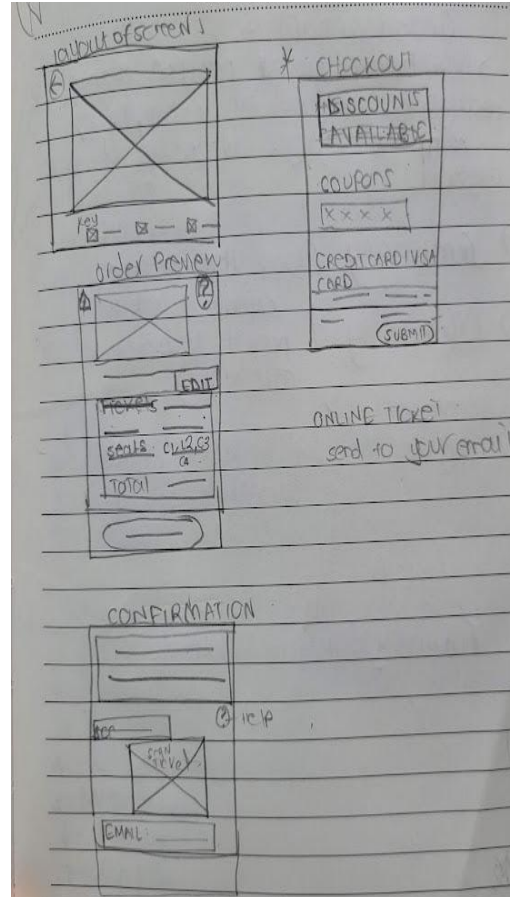 layout of screens
key
order Preview
?
EDIT
Tickets
seats C1, C2, C3
C4
TOTAL
CONFIRMATION
? Help
scan
EMAIL:
* CHECKOUT
DISCOUNTS
AVAILABLE
COUPONS
X X X X
CREDITCARD/VISA
CARD
SUBMIT
ONLINE TICKET
send to your email